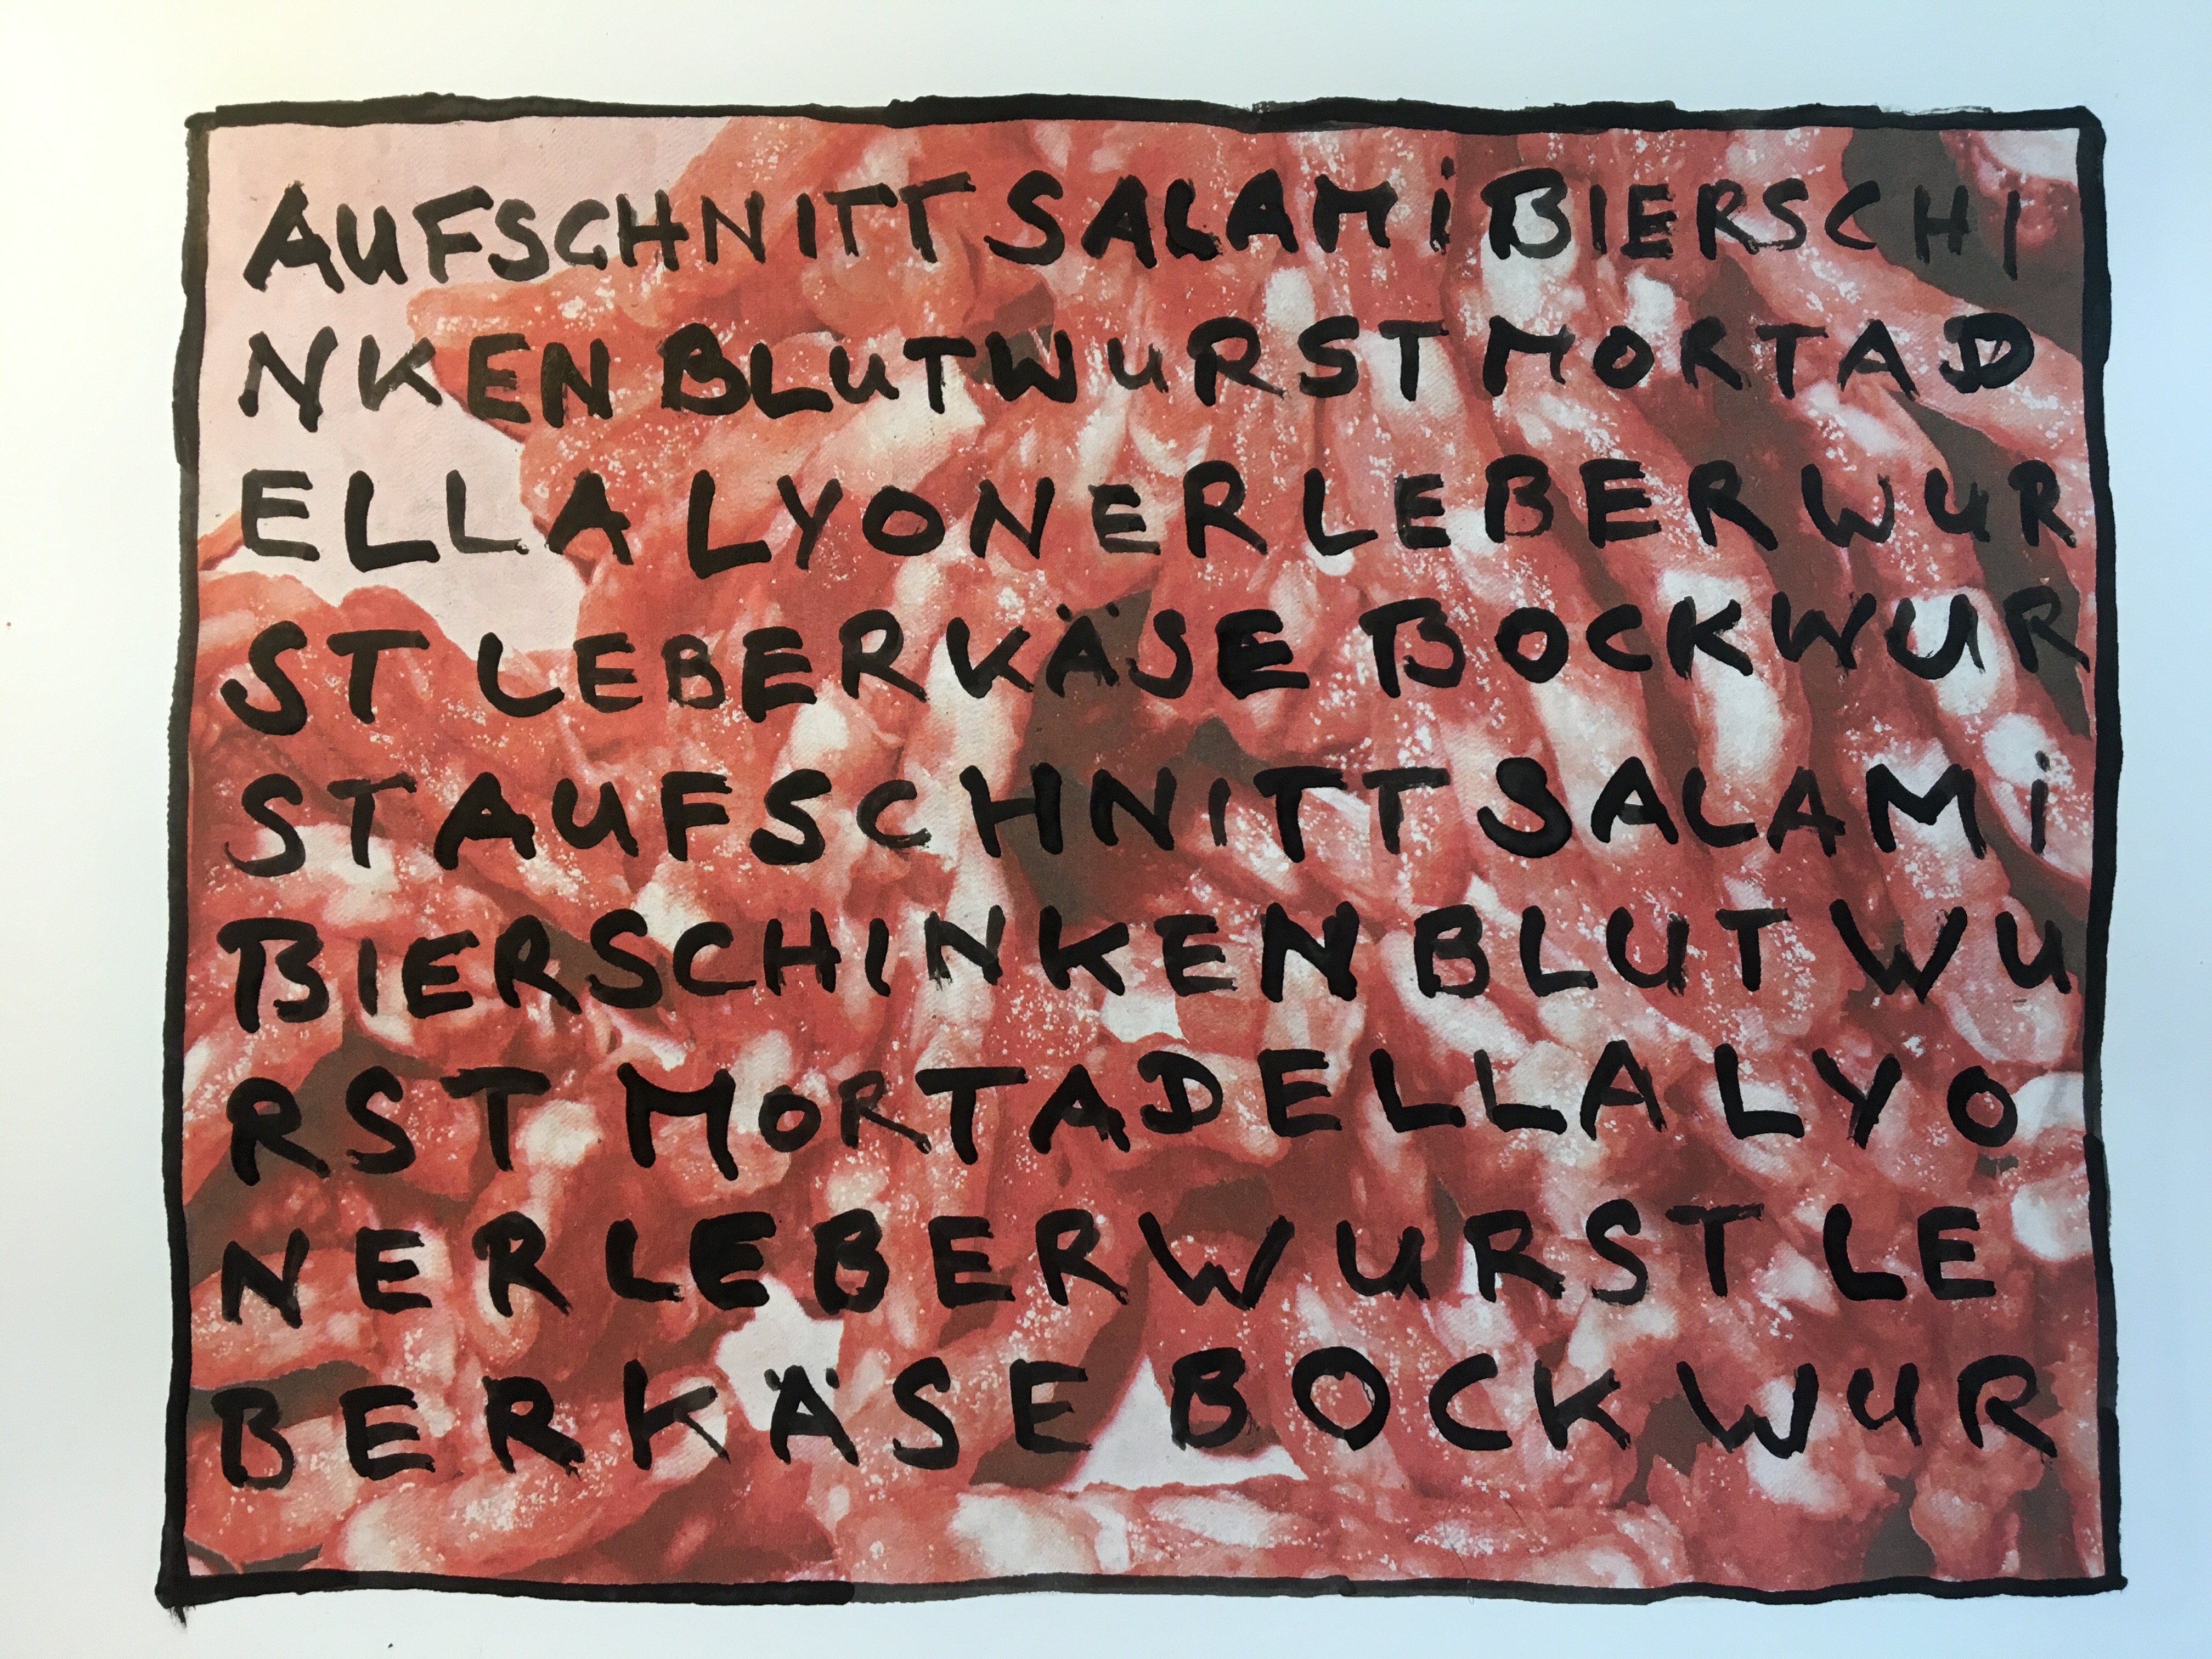 AUFSCHNITT SALAMi BIERSCHI
NKEN BLUTWURST MORTAD
ELLA LYONER LEBERWUR
ST LEBERKÄSE BOCKWUR
ST AUFSCHNITT SALAMi
BIERSCHINKEN BLUTWU
RST MORTADELLA LYO
NER LEBERWURST LE
BERKÄSE BOCKWUR